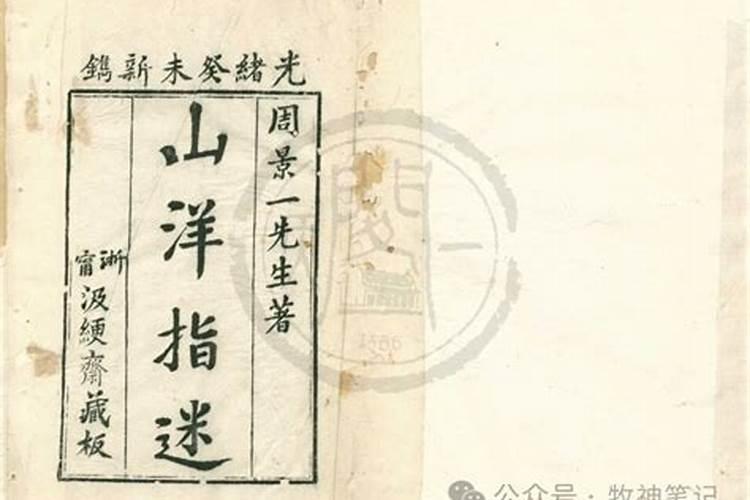 光緒癸未新鐫
周景一先生著
山洋指迷
浙甯汲綆齋藏板
公众号：牧神笔记